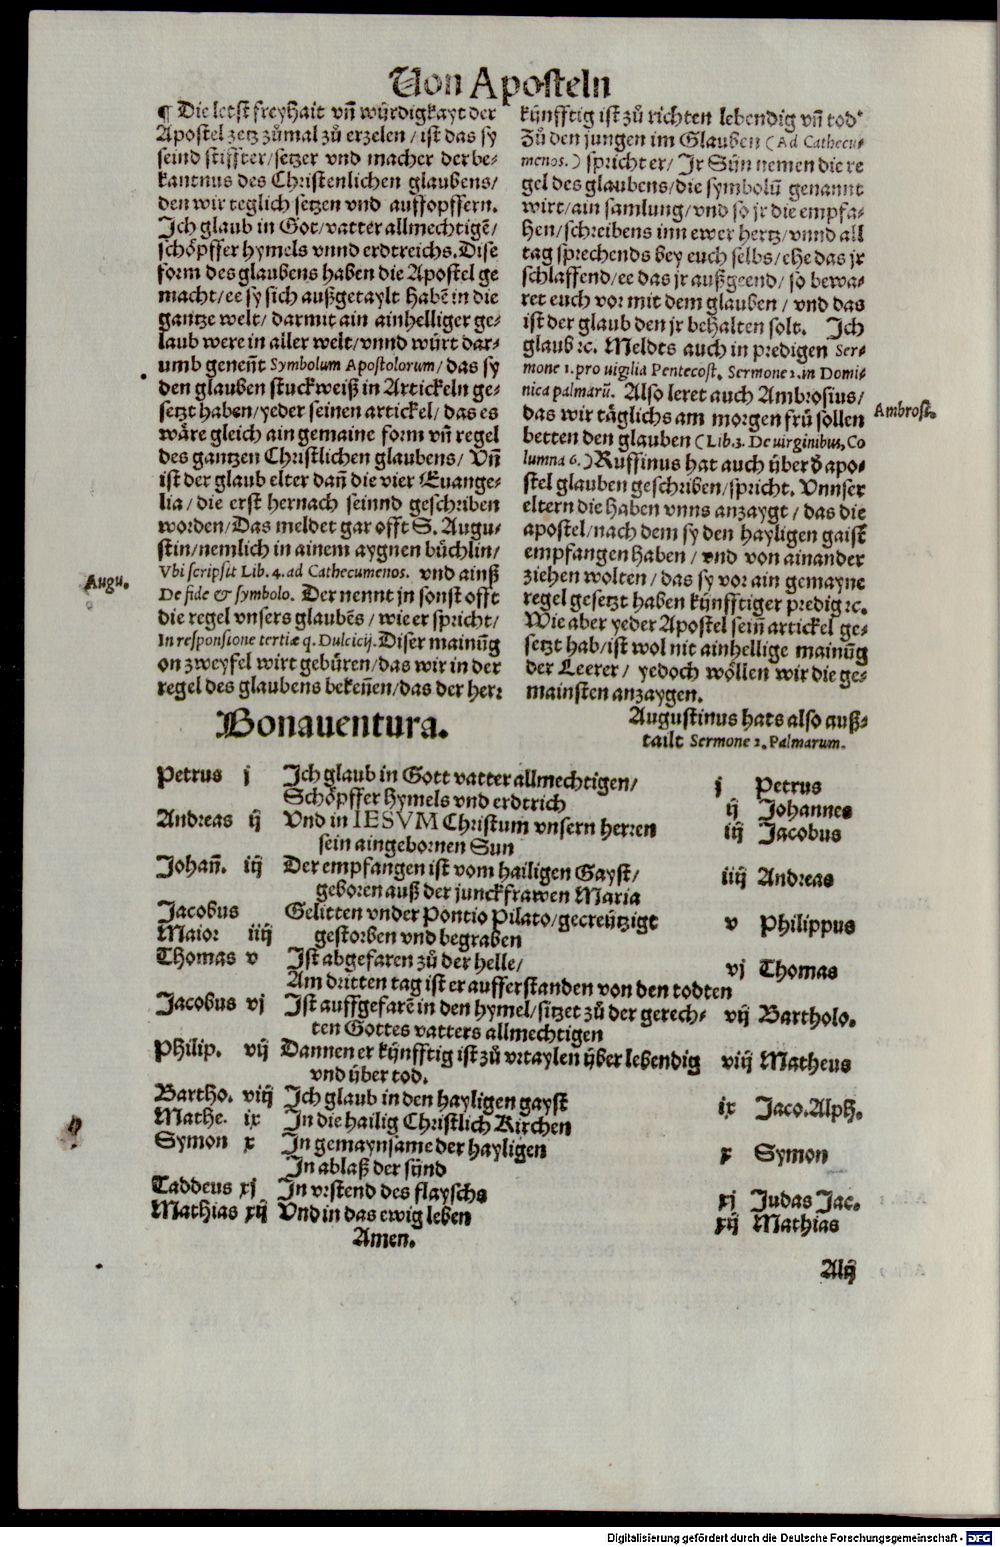 Von Aposteln
¶ Die letst freyhait vñ wůrdigkayt der
Apostel yetz zůmal zů erzelen / ist das sy
seind stiffter / setzer vnd macher der be-
kantnus des Christenlichen glaubens /
den wir teglich setzen vnd auffopffern.
Jch glaub in Got / vatter allmechtigẽ /
schöpffer hymels vnnd erdtreichs. Dise
form des glaubens haben die Apostel ge
macht / ee sy sich außgetaylt habẽ in die
gantze welt / darmit ain ainhelliger ge-
laub were in aller welt / vnnd würt dar-
umb geneñt Symbolum Apostolorum / das sy
den glauben stuckweiß in Artickeln ge-
setzt haben / yeder seinen artickel / das es
wäre gleich ain gemaine form vñ regel
des gantzen Christlichen glaubens / Vñ
ist der glaub elter dañ die vier Euange-
lia / die erst hernach seinnd geschriben
worden / Das meldet gar offt S. Augu-
stin / nemlich in ainem aygnen büchlin /
Augu.
Vbi scripsit Lib. 4. ad Cathecumenos. vnd ainß
De fide & symbolo. Der nennt jn sonst offt
die regel vnsers glaubẽs / wie er spricht /
In responsione tertiæ q. Dulcicij. Diser mainũg
on zweyfel wirt gebüren / das wir in der
regel des glaubens bekeñen / das der herr
künfftig ist zů richten lebendig vñ tod
Zů den jungen im Glauben (Ad Cathecu-
menos.) spricht er / Jr Sün nemen die re
gel des glaubens / die symbolũ genannt
wirt / ain samlung / vnd so jr die empfa-
hen / schreibens inn ewer hertz / vnnd all
tag sprechends bey euch selbs / ehe das jr
schlaffend / ee das jr außgeend / so bewa-
ret euch vor mit dem glauben / vnd das
ist der glaub den jr behalten solt. Jch
glaub ꝛc. Meldts auch in predigen Ser-
mone 1. pro uigilia Pentecost. Sermone 2. in Domi-
nica palmarũ. Also leret auch Ambrosius /
das wir täglichs am morgen frü sollen
Ambros.
betten den glauben (Lib. 3. De uirginibus, Co
lumna 6.) Ruffinus hat auch über d̃ apo-
stel glauben geschriben / spricht. Vnnser
eltern die haben vnns anzaygt / das die
apostel / nach dem sy den hayligen gaist
empfangen haben / vnd von ainander
ziehen wolten / das sy vor ain gemayne
regel gesetzt haben künfftiger predig ꝛc.
Wie aber yeder Apostel seiñ artickel ge-
setzt hab / ist wol nit ainhellige mainũg
der Leerer / yedoch wöllen wir die ge-
mainsten anzaygen.
Bonauentura.
Augustinus hats also auß-
tailt Sermone 2. Palmarum.
Petrus j Jch glaub in Gott vatter allmechtigen / j Petrus
Schöpffer hymels vnd erdtrich ij Johannes
Andreas ij Vnd in IESVM Christum vnsern herren iij Jacobus
sein aingebornen Sun
Johañ. iij Der empfangen ist vom hailigen Gayst / iiij Andreas
geboren auß der junckfrawen Maria
Jacobus Gelitten vnder Pontio Pilato / gecreützigt v Philippus
Maior iiij gestorben vnd begraben
Thomas v Jst abgefaren zů der helle / vj Thomas
Am dritten tag ist er aufferstanden von den todten
Jacobus vj Jst auffgefarẽ in den hymel / sitzet zů der gerech- vij Bartholo.
ten Gottes vatters allmechtigen
Philip. vij Dannen er künfftig ist zů vrtaylen über lebendig viij Matheus
vnd über tod.
Bartho. viij Jch glaub in den hayligen gayst ix Jaco. Alph.
Mathe. ix Jn die hailig Christlich Kirchen
Symon x Jn gemaynsame der hayligen x Symon
Jn ablaß der sünd
Taddeus xj Jn vrstend des flayschs xj Judas Jac.
Mathias xij Vnd in das ewig leben xij Mathias
Amen.
Aly
Digitalisierung gefördert durch die Deutsche Forschungsgemeinschaft - DFG